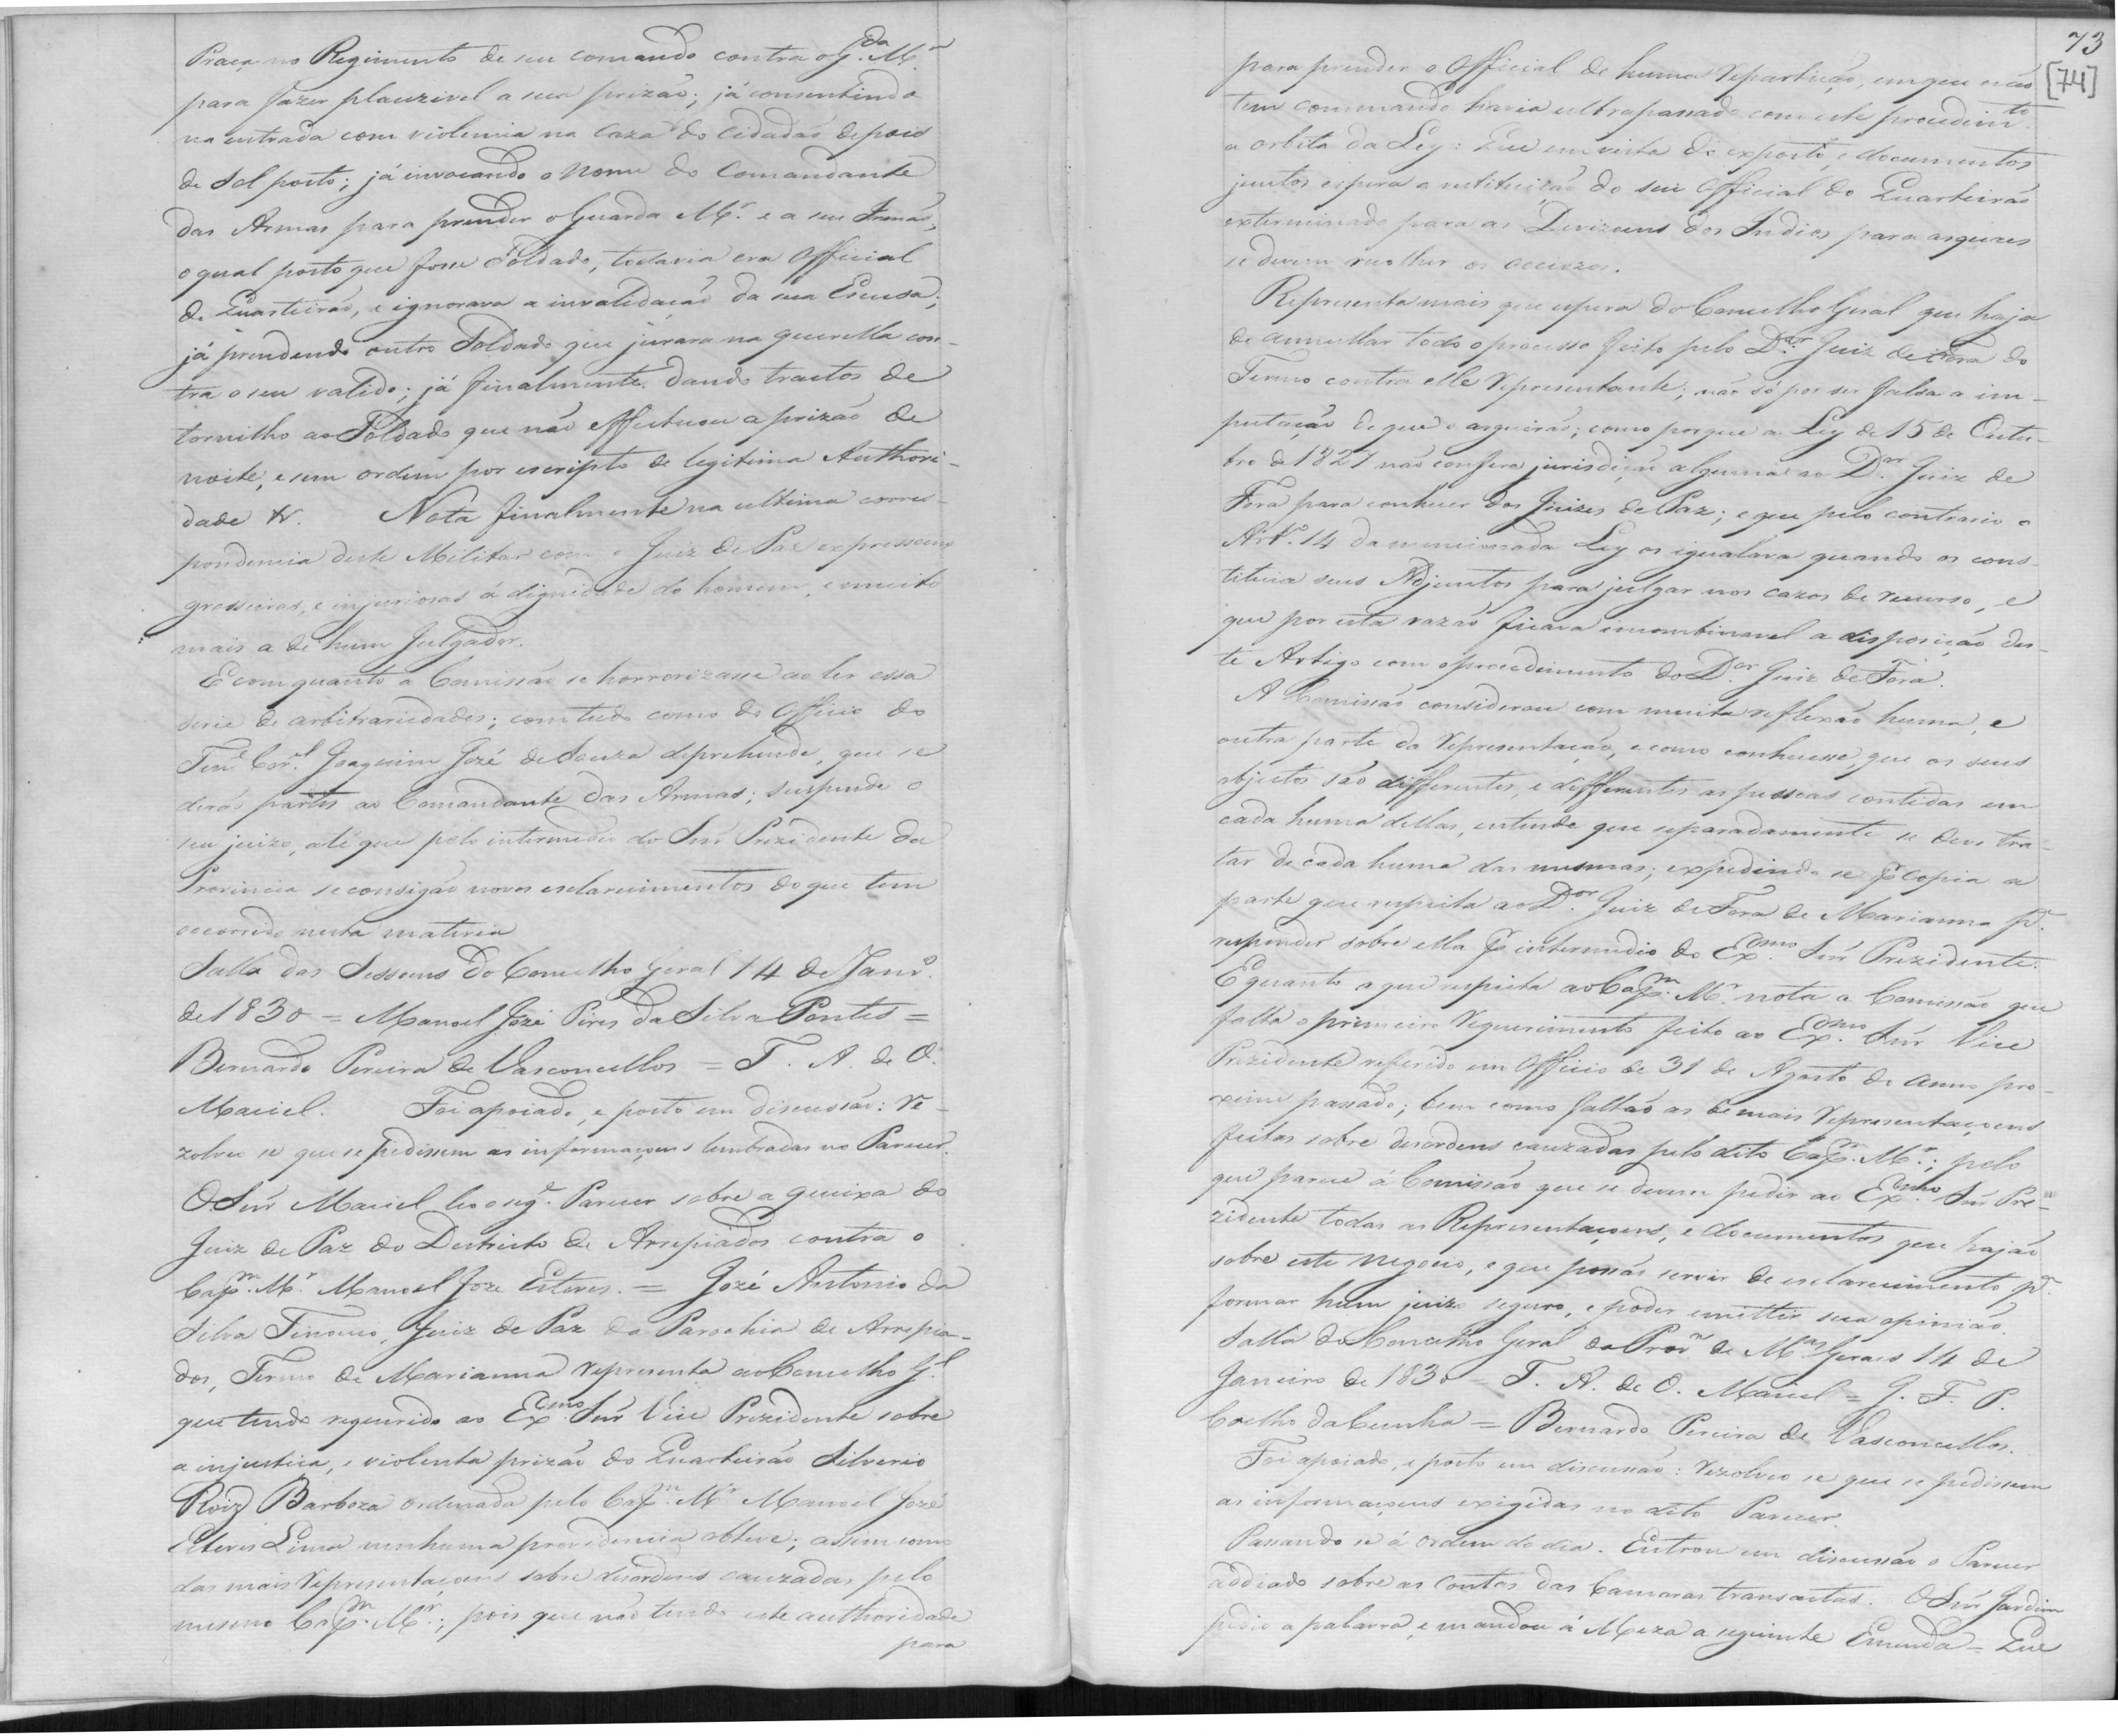 Praça no Regimento de seu comando contra o G.da M.r
para fazer plauzivel a sua prizaõ; já consentindo
na entrada com violencia na Caza do Cidadaõ depois
de Sol posto; já invocando o Nome do Comandante
das Armas para prender o Guarda M.r e a seu Irmaõ,
o qual posto que fosse Soldado, todavia era Official
de Quarteiraõ, e ignorava a invalidaçaõ da sua Escusa;
já prendendo outro Soldado que jurara na querella con-
tra o seu valido; já finalmente dando tractos de
tornilho ao Soldado que naõ effectuou a prizaõ de
noite, e sem ordem por escripto de legitima Authori-
dade &. Nota finalmente na ultima corres-
pondencia deste Militar com o Juiz de Paz expressoens
grosseiras, e injuriosas á dignidade do homem, e muito
mais a de hum Julgador.
E com quanto a Comissaõ se horrorizasse ao ler essa
serie de arbitrariedades; com tudo como do Officio do
Ten.e Cor.el Joaquim Jozé de Souza deprehende, que se
deraõ partes ao Comandante das Armas; suspende o
seu juizo, até que pelo intermedio do Snr Prezidente da
Provincia se consigaõ novos esclarecimentos do que tem
occorrido nesta materia
Salla das Sessoens do Conselho Geral 14 de Janr.o
de 1830 = Manoel Jozé Pires da Silva Pontes =
Bernardo Pereira de Vasconcellos = T. A. de O.
Maciel. Foi apoiado, e posto em discussaõ: Re-
zolveu se que se pedissem as informaçoens lembradas no Parecer.
O Snr Maciel leo o seg.e Parecer sobre a queixa do
Juiz de Paz do Destricto de Arrepiados contra o
Cap.m M.r Manoel Joze Esteves. = Jozé Antonio da
Silva Tinoco, Juiz de Paz da Parochia de Arrepia-
dos, Termo de Marianna representa ao Conselho G.l
que tendo requerido ao Ex.mo Snr Vice Prezidente sobre
a injustiça, e violenta prizaõ do Quarteiraõ Silverio
Roiz Barboza ordenada pelo Cap.m M.r Manoel Jozé
Esteves Lima nenhuma providencia obteve; assim como
das mais representaçoens sobre desordens cauzadas pelo
mesmo Cap.m M.r; pois que naõ tendo este authoridade
para
73
[74]
para prender o Official de huma repartiçaõ, em que naõ
tem commando havia ultrapassado com este procedim.to
a orbita da Ley: Que em vista do exposto, e documentos
juntos espera a restituiçaõ do seu Official do Quarteiraõ
exterminado para as Divizoens dos Indios para as quaes
se devem recolher os ociozos.
Representa mais que espera do Conselho Geral que haja
de annullar todo o processo feito pelo D.or Juiz de Fora do
Termo contra elle representante; naõ só por ser falsa a im-
putaçaõ de que o arguiraõ; como porque a Ley de 15 de Outu-
bro de 1827 naõ confere jurisdiçaõ alguma ao D.or Juiz de
Fora para conhecer dos Juizes de Paz; e que pelo contrario o
Art.o 14 da mencionada Ley os igualava quando os cons-
tituia seus Adjuntos para julgar nos cazos de recurso, e
que por esta razaõ ficava incombinavel a disposiçaõ des-
te Artigo com o procedimento do D.or Juiz de Fora.
A Comissaõ considerou com muita reflexaõ huma, e
outra parte da representaçaõ, e como conhecesse, que os seus
objectos saõ differentes, e differentes as pessoas contidas em
cada huma dellas, entende que separadamente se deve tra-
tar de cada huma das mesmas; expedindo se p.r Copia a
parte que respeita ao D.or Juiz de Fora de Marianna p.a
responder sobre ella p.r intermedio do Ex.mo Snr Prezidente.
E quanto a que respeita ao Cap.m M.r nota a Comissaõ que
falta o primeiro requerimento feito ao Ex.mo Snr Vice
Prezidente referido em Officio de 31 de Agosto do anno pro-
ximo passado; bem como faltaõ as de mais representaçoens
feitas sobre desordens cauzadas pelo dito Cap.m M.r; pelo
que parece á Comissaõ que se devem pedir ao Ex.mo Snr Pre-
zidente todas as Representaçoens, e documentos que hajaõ
sobre este negocio, e que possaõ servir de esclarecimento p.a
formar hum juizo seguro, e poder emittir sua opiniaõ.
Salla do Conselho Geral da Prov.a de M.as Geraes 14 de
Janeiro de 1830 = T. A. de O. Maciel = J. F. P.
Coelho da Cunha = Bernardo Pereira de Vasconcellos.
Foi apoiado, e posto em discussaõ: rezolveo se que se pedissem
as informaçoens exigidas no dito Parecer.
Passando se á ordem do dia. Entrou em discussaõ o Parecer
addiado sobre as contas das Camaras transactas. O Snr Jardim
pedio a palavra, e mandou á Meza a seguinte Emenda = Que